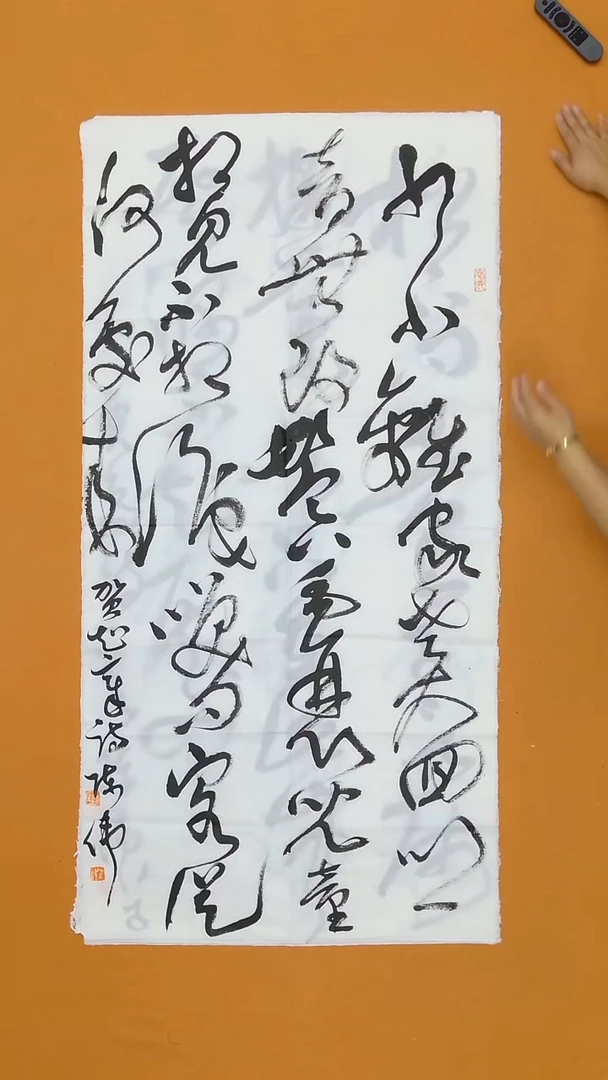 少小離家老大回鄉
音無改鬢毛衰兒童
相見不相識笑問客從
何處來
賀知章詩陳偉